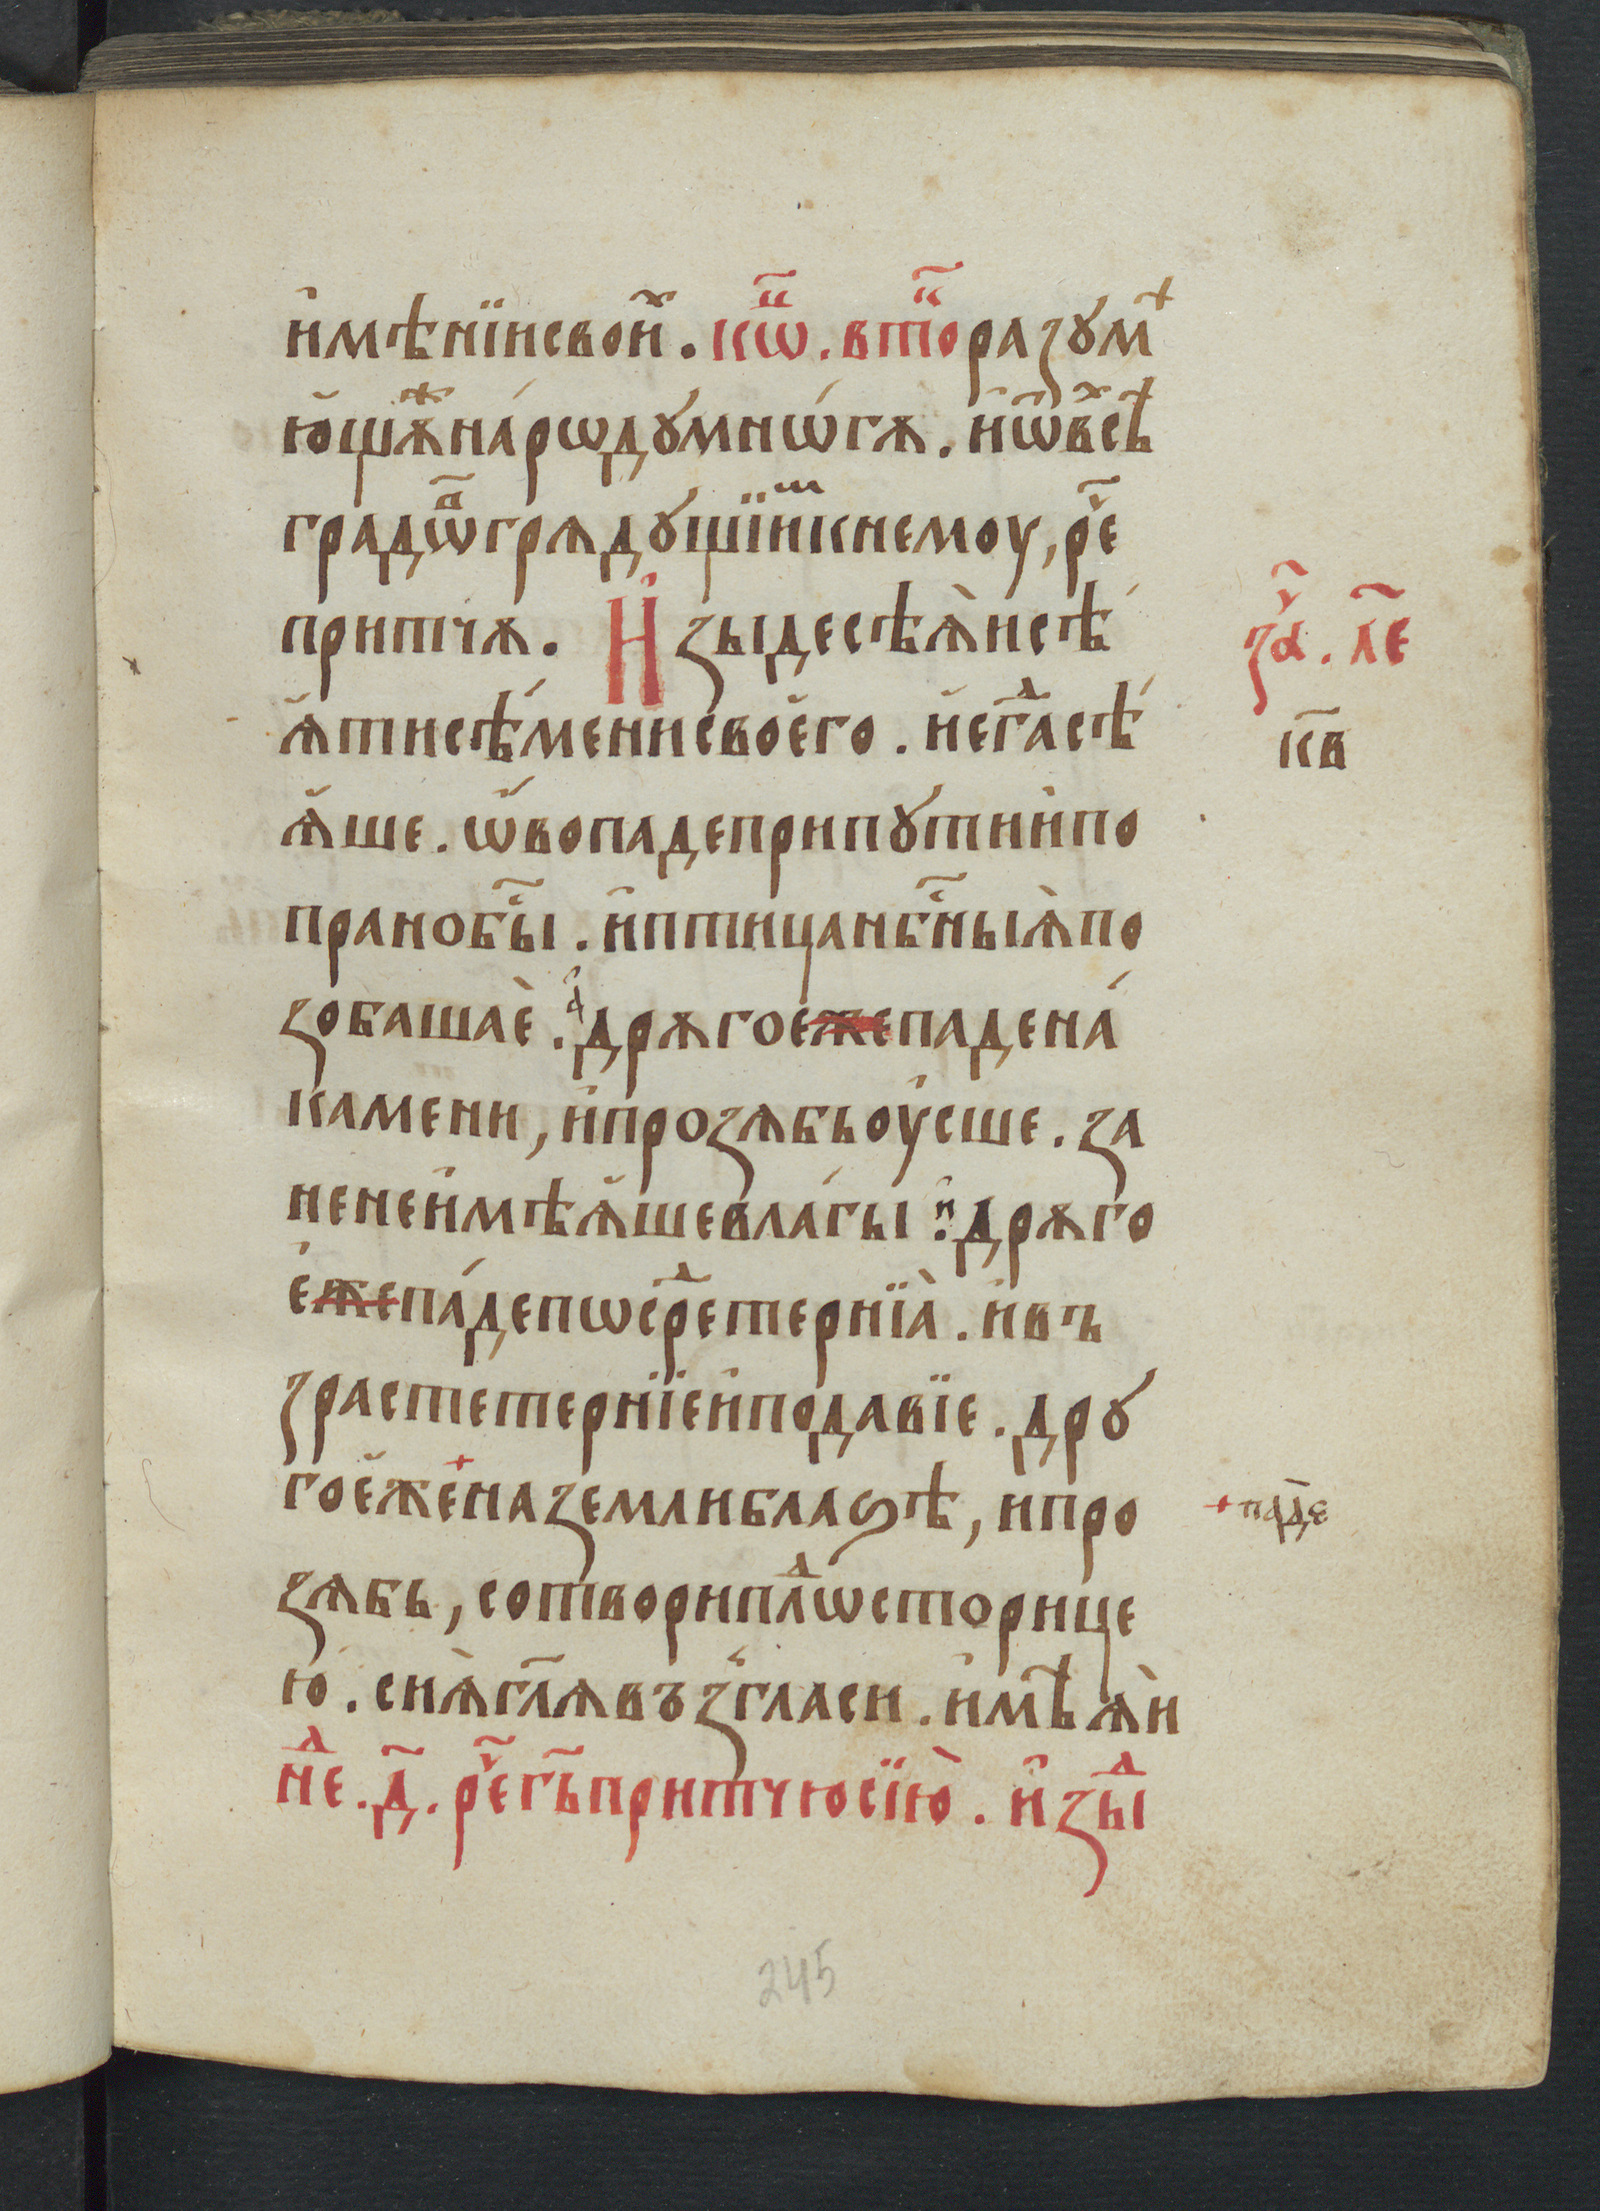 и҆мѣнїисвои҆ⷯ. кѡ҃ⷩ. вто҃ⷦразꙋмⷤ
ю҆щѫⷤна́рѡдꙋмнѡ́гѫ. и҆ѿвⷭ҇ѣⷯ
градѡ҃ⷡгрѧдꙋщїиⷨкнемоу, ре҃ⷱ
притчѫ. И҆зыдесѣѧ̀исѣ́
ѧ҆тисѣ́менисвоегѡ. и҆егⷣасѣ́
ѧ҆ше. ѡ҆вопадеприпꙋтиипо
пранобы҃ⷭ. и҆птицанб҃ⷭныѧ̀по
зобашаѐ. аⷣ дрѫгоежепадена́
камени, и҆прозѧбьоу҆сше. за
ненеимѣѧ҆шевла́гы и҆ дрѫго
ежепа́депѡсреⷣтернїа̀. и҆въ
растетернїеи҆подавїе. дрꙋ
гое҆женаземлиблаѕѣ, ипро
зѧбь, сотворипл҇ѡⷣсторице
ю. сиѧ̀гл҃ѧвъзⷭгласи. и҆мѣ҃ѧ̀и
неⷣ. д҃. ре҃ⷱгь҃притчюсїю̀. и҆зыⷣ
за҃ⷱ. ле҃
к҃в
+ паде
245